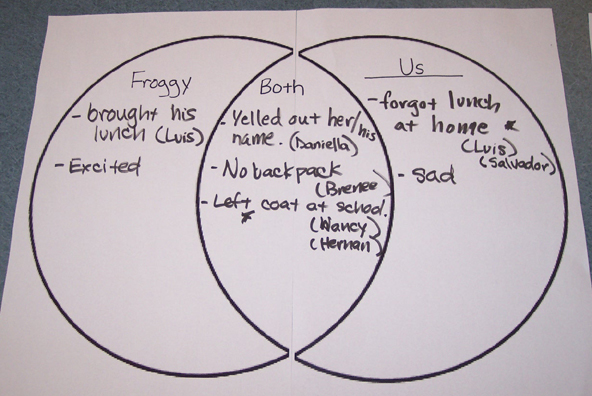 Froggy
- brought his
lunch (Luis)
- Excited
Both
- Yelled out her/his
name. (Daniella)
- No backpack
(Brenee)
- Left coat at school.
*
(Nancy)
(Hernan)
Us
- forgot lunch
at home *
(Luis)
(Salvador)
- sad